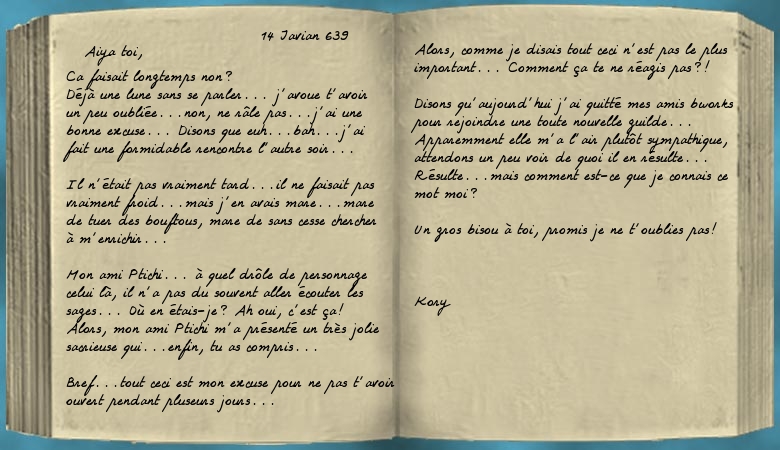 14 Javian 639
Aiya toi,
Ca faisait longtemps non?
Déjà une lune sans se parler... j'avoue t'avoir
un peu oubliée...non, ne râle pas...j'ai une
bonne excuse... Disons que euh...bah...j'ai
fait une formidable rencontre l'autre soir...
Il n'était pas vraiment tard...il ne faisait pas
vraiment froid...mais j'en avais mare...mare
de tuer des bouftous, mare de sans cesse chercher
à m'enrichir...
Mon ami Ptichi... à quel drôle de personnage
celui là, il n'a pas du souvent aller écouter les
sages... Où en étais-je? Ah oui, c'est ça!
Alors, mon ami Ptichi m'a présenté un très jolie
sacrieuse qui...enfin, tu as compris...
Bref...tout ceci est mon excuse pour ne pas t'avoir
ouvert pendant pluseurs jours...
Alors, comme je disais tout ceci n'est pas le plus
important... Comment ça te ne réagis pas?!
Disons qu'aujourd'hui j'ai quitté mes amis bworks
pour rejoindre une toute nouvelle guilde...
Apparemment elle m'a l'air plutôt sympathique,
attendons un peu voir de quoi il en résulte...
Résulte...mais comment est-ce que je connais ce
mot moi?
Un gros bisou à toi, promis je ne t'oublies pas!
Kory